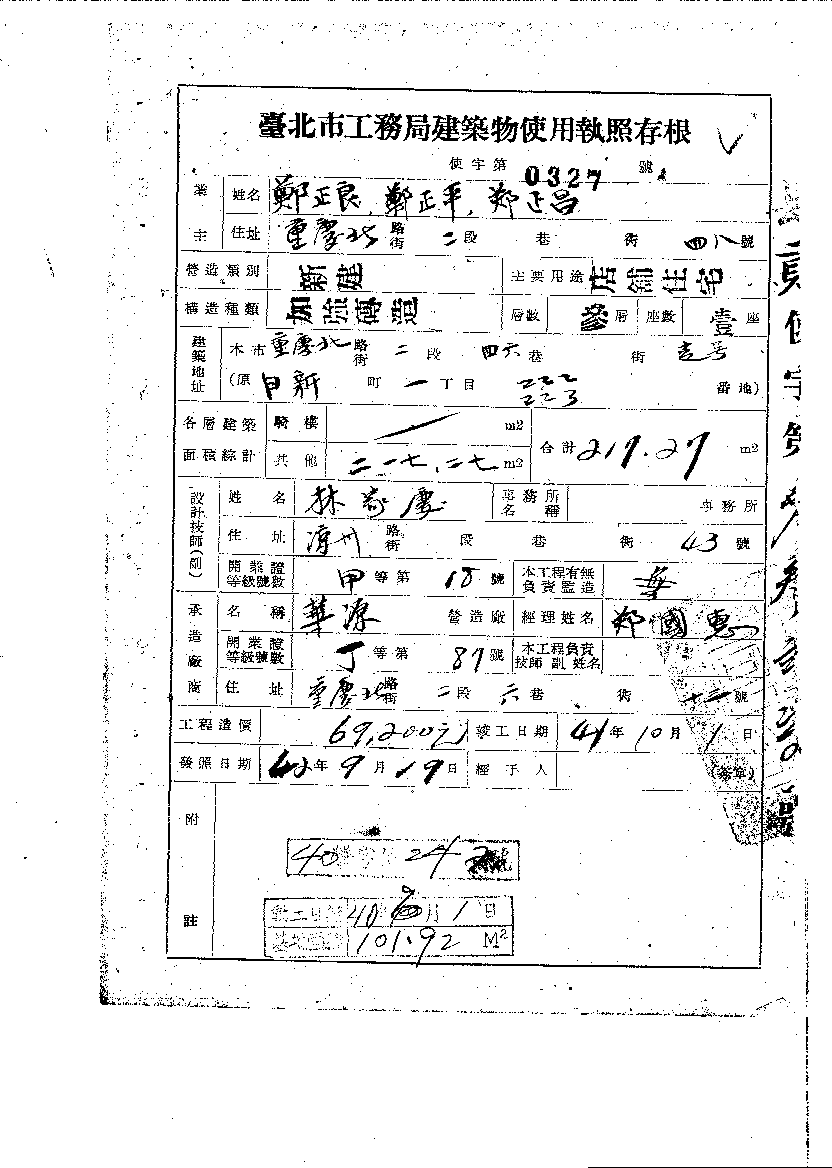 臺北市工務局建築物使用執照存根
使字第 0327 號
業主 姓名 鄭正良, 鄭正平, 鄭正昌
住址 重慶北 路街 二段 巷 街 四八號
營造類別 新建 主要用途 店舖住宅
構造種類 加強磚造 層數 參層 座數 壹座
建築地址 本市 重慶北 路街 二段 四六巷 街 壹号
(原 日新 町 一丁目 222 223 番地)
各層建築面積綜計 騎樓 m2 合計 217.27 m2
其他 二一七.二七 m2
設計技師(副) 姓名 林 慶 事務所名稱 事務所
住址 涼州 路街 段 巷 街 43號
開業證等級號數 甲等第 18號 本工程有無負責監造 無
承造廠商 名稱 華源 營造廠 經理姓名 鄭國惠
開業證等級號數 丁等第 87號 本工程負責技師副姓名
住址 重慶北 路街 二段 六巷 街 十二號
工程造價 69,200元 竣工日期 41年10月1日
發照日期 42年9月19日 經手人 (簽章)
附註
40 24 號
動工日期 40 9月1日
101.92 M²